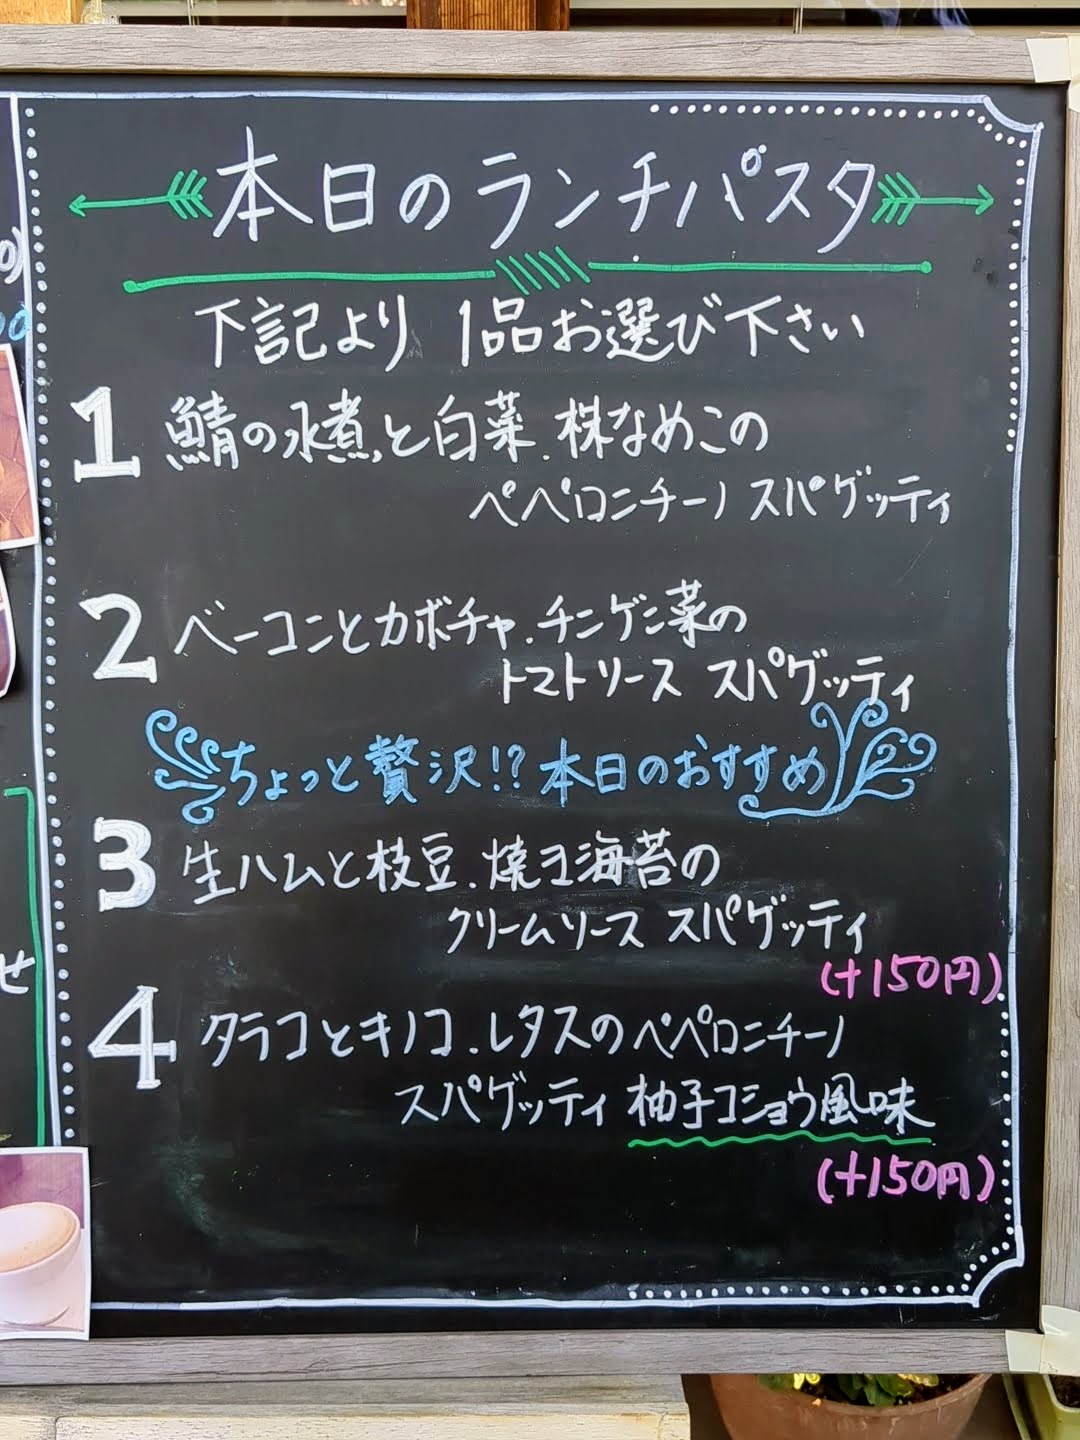 本日のランチパスタ
下記より 1品お選び下さい
1 鯖の水煮と白菜.株なめこの
ペペロンチーノ スパゲッティ
2 ベーコンとカボチャ.チンゲン菜の
トマトソース スパゲッティ
ちょっと贅沢!?本日のおすすめ
3 生ハムと枝豆.焼ヨ海苔の
クリームソース スパゲッティ
(+150円)
4 タラコとキノコ.レタスのペペロンチーノ
スパゲッティ 柚子コショウ風味
(+150円)
せ